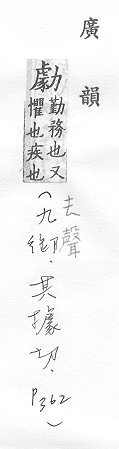 廣韻
勮
勤務也又
懼也疾也
去聲
(九御.其據切.P362)